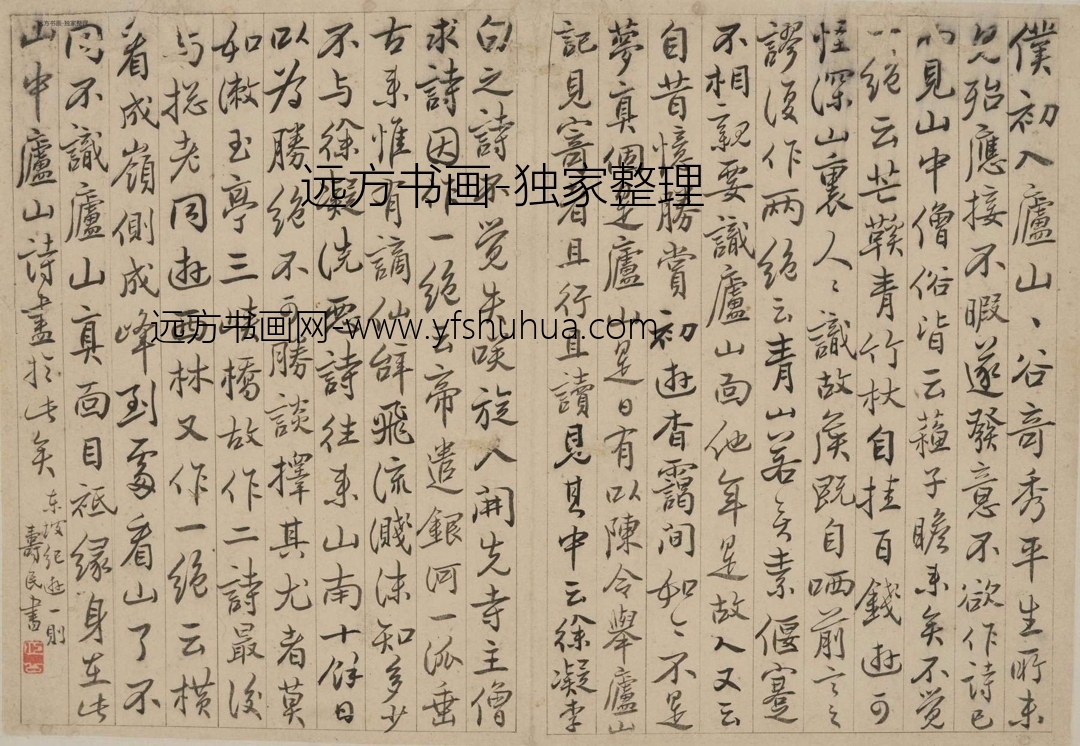 僕初入廬山、谷奇秀平生所未
見殆應接不暇遂發意不欲作詩已
而見山中僧俗皆云蘓子瞻来矣不覺
一絕云芒鞵青竹杖自挂百錢遊可
怪深山裏人〻識故矦既自哂前言之
謬復作兩絕云青山若无素偃蹇
不相親要識廬山面他年是故人又云
自昔憶勝賞初遊杳靄間如〻不是
夢真個是廬山是日有以陳令舉廬山
記見寄者且行且讀見其中云徐凝李
白之詩不覚失咲旋入開先寺主僧
求詩因作一絕云帝遣銀河一派垂
古来惟有謫仙辭飛流濺沫知多少
不与徐凝洗惡詩往来山南十餘日
以為勝絕不可勝談擇其尤者莫
如漱玉亭三峽橋故作二詩最後
与揔老同遊西林又作一絕云橫
看成嶺側成峰到處看山了不
同不識廬山真面目祗緣身在此
山中廬山詩盡於此矣
东坡紀遊一則
壽民書
远方书画-独家整理
远方书画网-www.yfshuhua.com